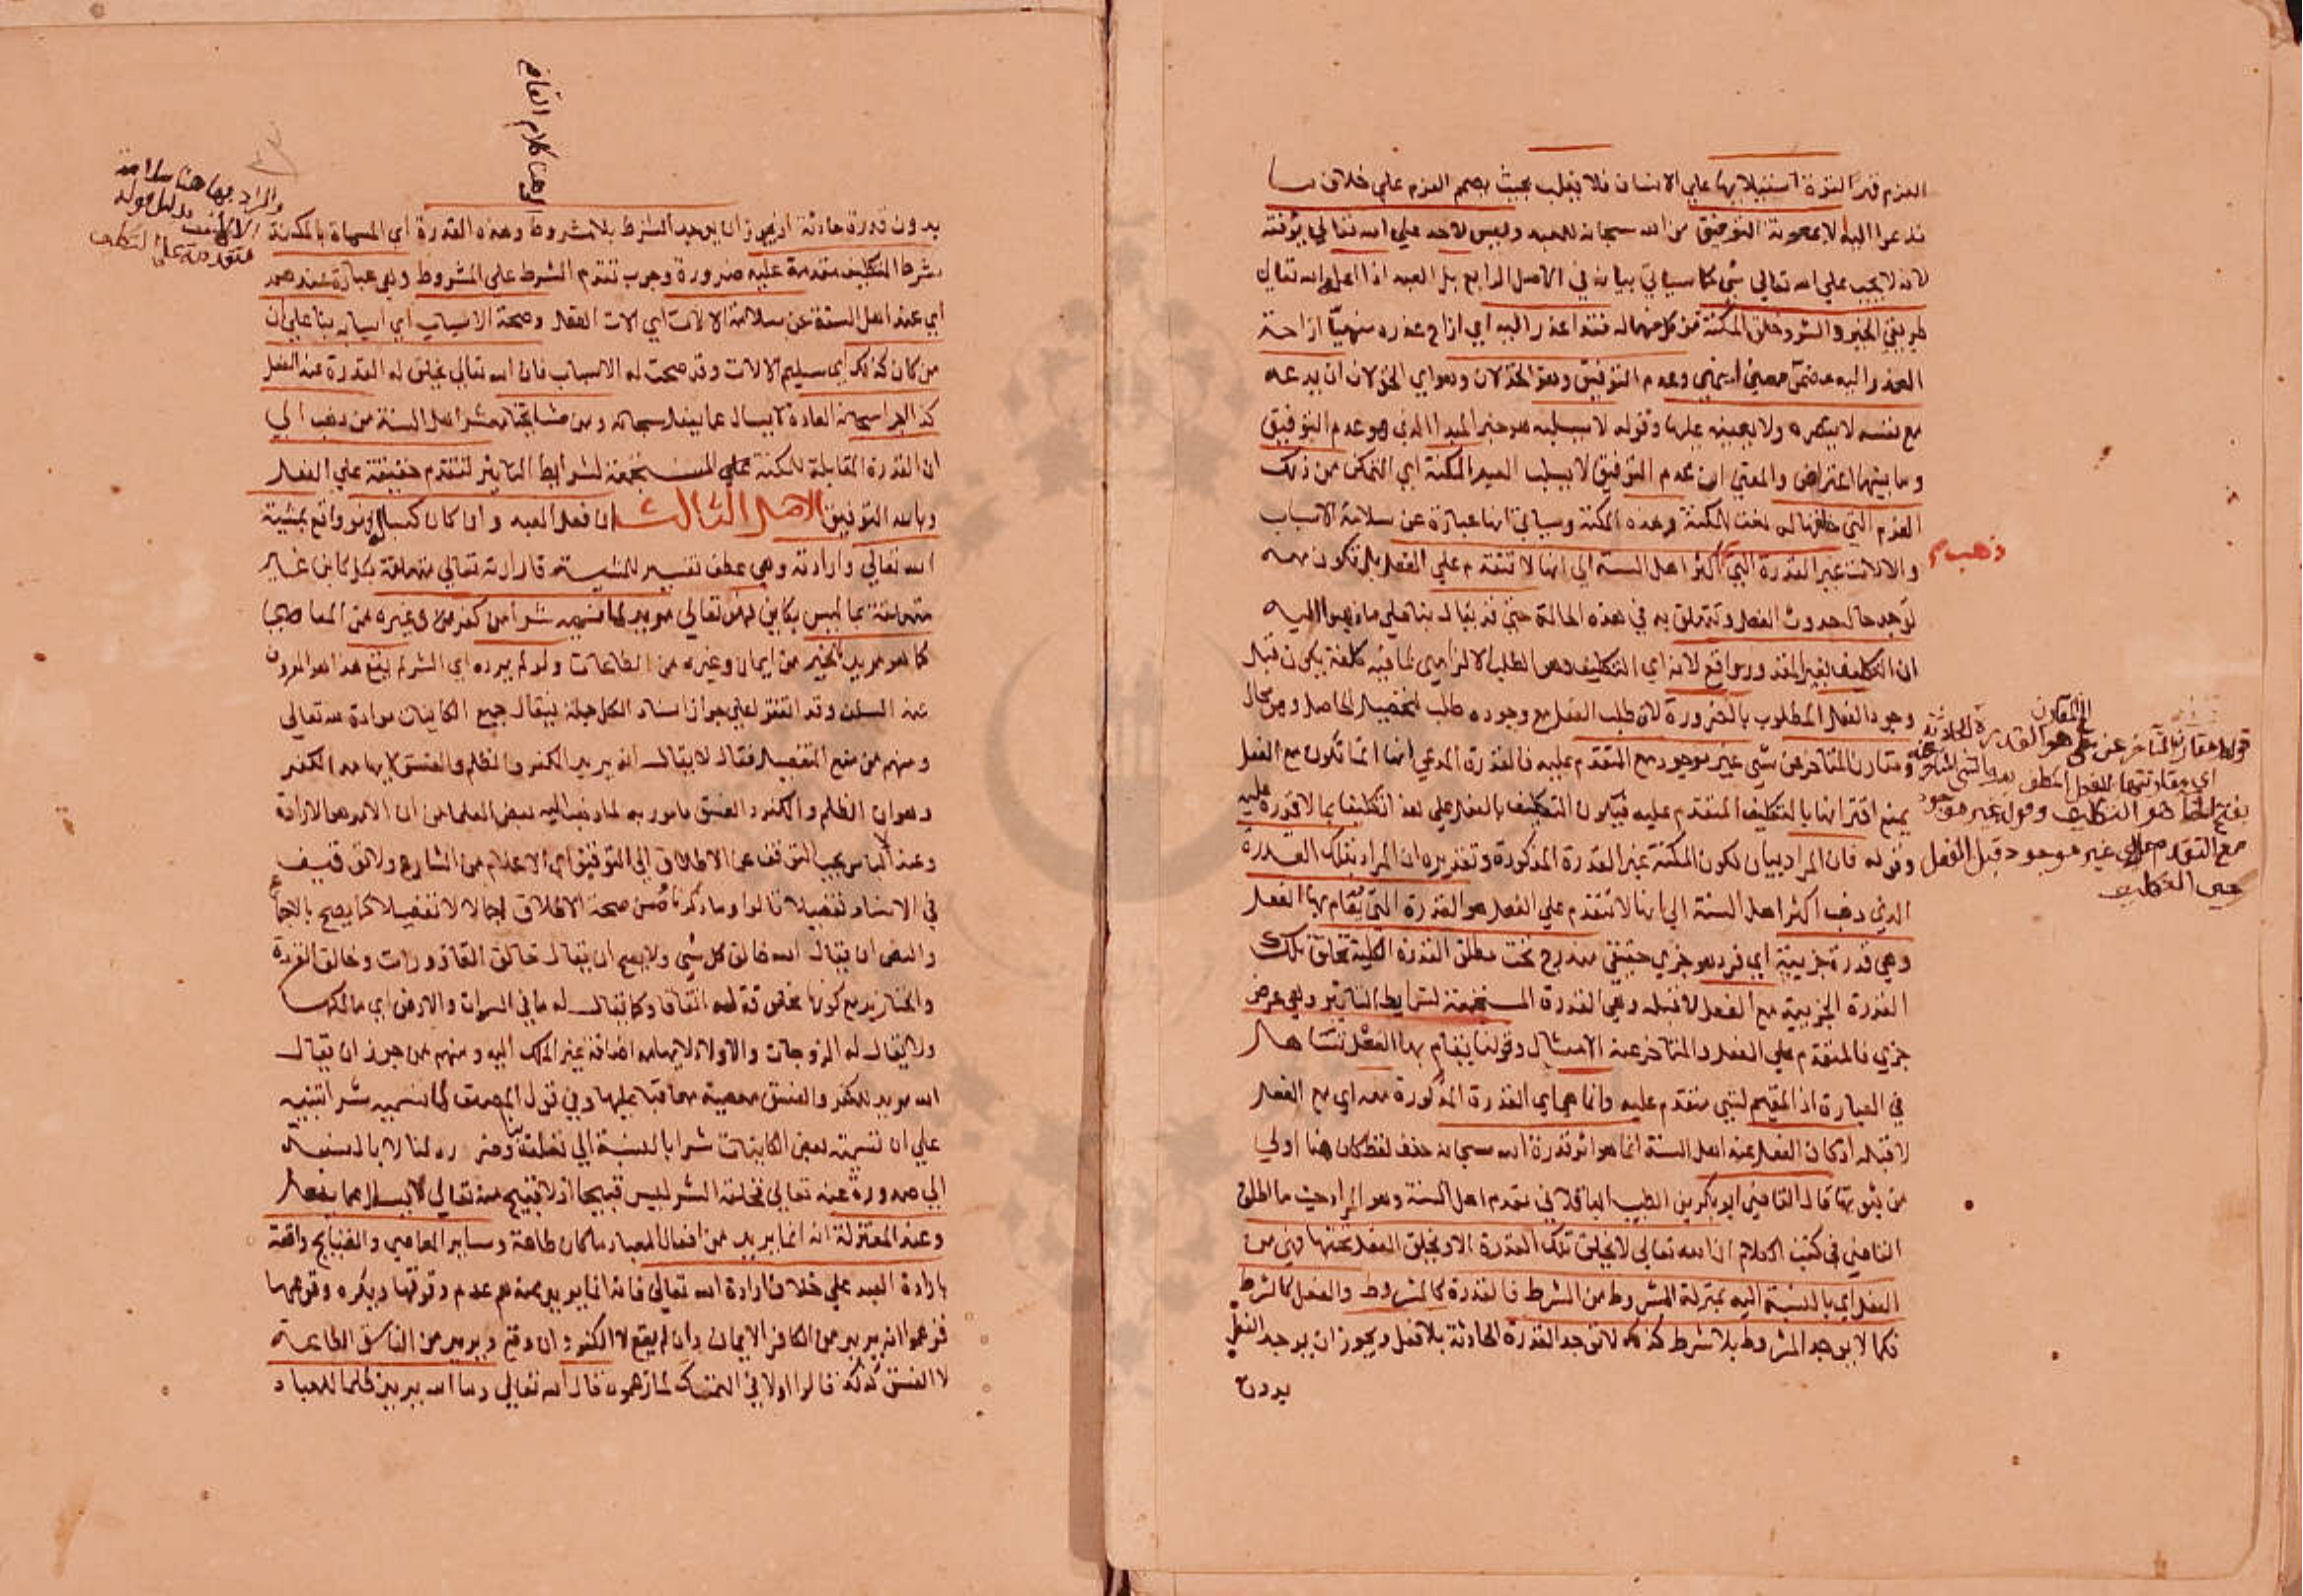 العزم قهرا لقوة استيلائها على الانسان فلا يغلب بحيث يصمم العزم على خلاف ما
تدعو اليه الا بمعونة التوفيق من الله سبحانه للعبد وليس لاحد على الله تعالى يوفقه
لانه لا يجب على الله تعالى شي كما سياتي بيانه في الاصل الرابع بل العبد اذا اعلمه الله تعالى
طريقي الخير والشر وخلق المكنة من كل منهما له فقد اعذر اليه اي ازاح عذره منهيا ازاحة
العذر اليه وعدم التوفيق وهو الخذلان وهو اي الخذلان ان يدعه
مع نفسه لا ينصره ولا يعينه عليها وقوله لا يسلبه هو خبر المبدا الذي هو عدم التوفيق
وما بينهما اعتراض والمعنى ان عدم التوفيق لا يسلب العبد المكنة اي التمكن من ذلك
العزم التي خلقها له نعت للمكنة وهذه المكنة وسياتي انها عبارة عن سلامة الاسباب
والالات غير القدرة التي اكثر اهل السنة الى انها لا تتقدم على الفعل بل تكون معه
ذهب
توجد حال حدوث الفعل وتتعلق به في هذه الحالة حتى قد يقال بنا على ما ذهبوا اليه
ان التكليف بغير المقدور واقع لانه اي التكليف وهو الطلب الالزامي لما فيه كلفة يكون قبل
وجود الفعل المطلوب بالضرورة لان طلب الفعل مع وجوده طلب لتحصيل الحاصل وهو محال
ومقارن المتاخر عن شي غير موجود مع المتقدم عليه فالقدرة المدعى انها انما تكون مع الفعل
يمنع اقترانها بالتكليف المتقدم عليه فيكون التكليف بالفعل على هذا تكليفا بما لا قدرة عليه
وقوله فان المراد بيان لكون المكنة غير القدرة المذكورة وتقديره ان المراد بتلك القدرة
الذي ذهب اكثر اهل السنة الى انها لا تتقدم على الفعل هو القدرة التي يقام بها الفعل
وهي قدرة جزيية اي فرد هو جزي حقيقي مندرج تحت مطلق القدرة الكلية تخلق تلك
القدرة الجزيية مع الفعل لا قبله وهي القدرة المستجمعة لشرايط التاثير وهي عرض
جزي فالمتقدم على الفعل والمتاخر عنه الامثال وقولنا يقام بها الفعل تساهل
في العبارة اذ المقيم لشي متقدم عليه وانما هي اي القدرة المذكورة معه اي مع الفعل
لا قبله اذ كان الفعل عند اهل السنة انما هو اثر قدرة الله سبحانه حذف لفظ كان هنا اولى
من ثبوتها قال القاضي ابو بكر بن الطيب الباقلاني مقدم اهل السنة وهو المراد حيث ما اطلق
القاضي في كتب الكلام ان الله تعالى لا يخلق تلك القدرة الا ويخلق الفعل تحتها فهي من
الفعل اي بالنسبة اليه بمنزلة المشروط من الشرط فالقدرة كالمشروط والفعل كالشرط
فكما لا يوجد المشروط بلا شرط كذلك لا توجد القدرة الحادثة بلا فعل ويجوز ان يوجد الفعل
بدون
بدون قدرة حادثة اذ يجوز ان يوجد الشرط بلا مشروط وهذه القدرة اي المسماة بالمكنة
شرط التكليف متقدمة عليه ضرورة وجوب تقدم الشرط على المشروط وهي عبارة عندهم
اي عند اهل السنة عن سلامة الالات اي الات الفعل وصحة الاسباب اي اسبابه بنا على ان
من كان كذلك اي سليم الالات وقد صحت له الاسباب فان الله تعالى يخلق له القدرة عند الفعل
كذا اجرا سبحانه العادة لا يسال عما يفعل سبحانه ومن مشايخنا معشر اهل السنة من ذهب الى
ان القدرة المقابلة للمكنة على المستجمعة لشرايط التاثير لتتقدم حقيقة على الفعل
وبالله التوفيق الاصل الثالث ان فعل العبد وان كان كسبا له فهو واقع بمشية
الله تعالى وارادته وهي عطف تفسير للمشية فارادته تعالى متعلقة بكل كاين غير
متعلقة بما ليس بكاين فهو تعالى مريد لما نسميه شرا من كفر وغيره من المعاصي
كما هو مريد للخير من ايمان وغيره من الطاعات ولو لم يرده اي الشر لم يقع هذا هو المروي
عن السلف وقد اتفقوا على جواز اسناد الكل جملة فيقال جميع الكاينات مرادة لله تعالى
ومنهم من منع التفصيل فقال لا يقال انه يريد الكفر والظلم والفسق لايهامه الكفر
وهو ان الظلم والكفر والفسق مامور به لما ذهب اليه بعض العلما من ان الامر هو الارادة
وعند الباس يجب التوقف عن الاطلاق الى التوقيف اي الاعلام من الشارع ولا توقيف
في الاسناد تفصيلا قالوا وما ذكرنا من صحة الاطلاق اجمالا لا تفصيلا كما يصح بالاجماع
والنص ان يقال الله خالق كل شي ولا يصح ان يقال خالق القاذورات وخالق القردة
والخنازير مع كونها مخلوقة له اتفاقا وكما يقال له ما في السموات والارض اي مالكها
ولا يقال له الزوجات والاولاد لايهامه اضافة غير الملك اليه ومنهم من جوز ان يقال
الله مريد للكفر والفسق معصية معاقبا عليها وفي قول المصنف لما نسميه شرا تنبيه
على ان تسمية بعض الكاينات شرا بالنسبة الى تعلقه بنا وضرره لنا لا بالنسبة
الى صدوره عنه تعالى فخلقه الشر ليس قبيحا اذ لا قبيح منه تعالى لا يسال عما يفعل
وعند المعتزلة انه انما يريد من افعال العباد ما كان طاعة وساير المعاصي والقبايح واقعة
بارادة العبد على خلاف ارادة الله تعالى فانه انما يريد عندهم عدم وقوعها ويكره وقوعها
فزعموا انه يريد من الكافر الايمان وان لم يقع لا الكفر وان وقع ويريد من الفاسق الطاعة
لا الفسق كذلك قالوا اولا في التمسك لما زعموه قال الله تعالى وما الله يريد ظلما للعباد
والمراد بها هنا سلامة
الالات بدليل قوله
متقدمة على التكليف